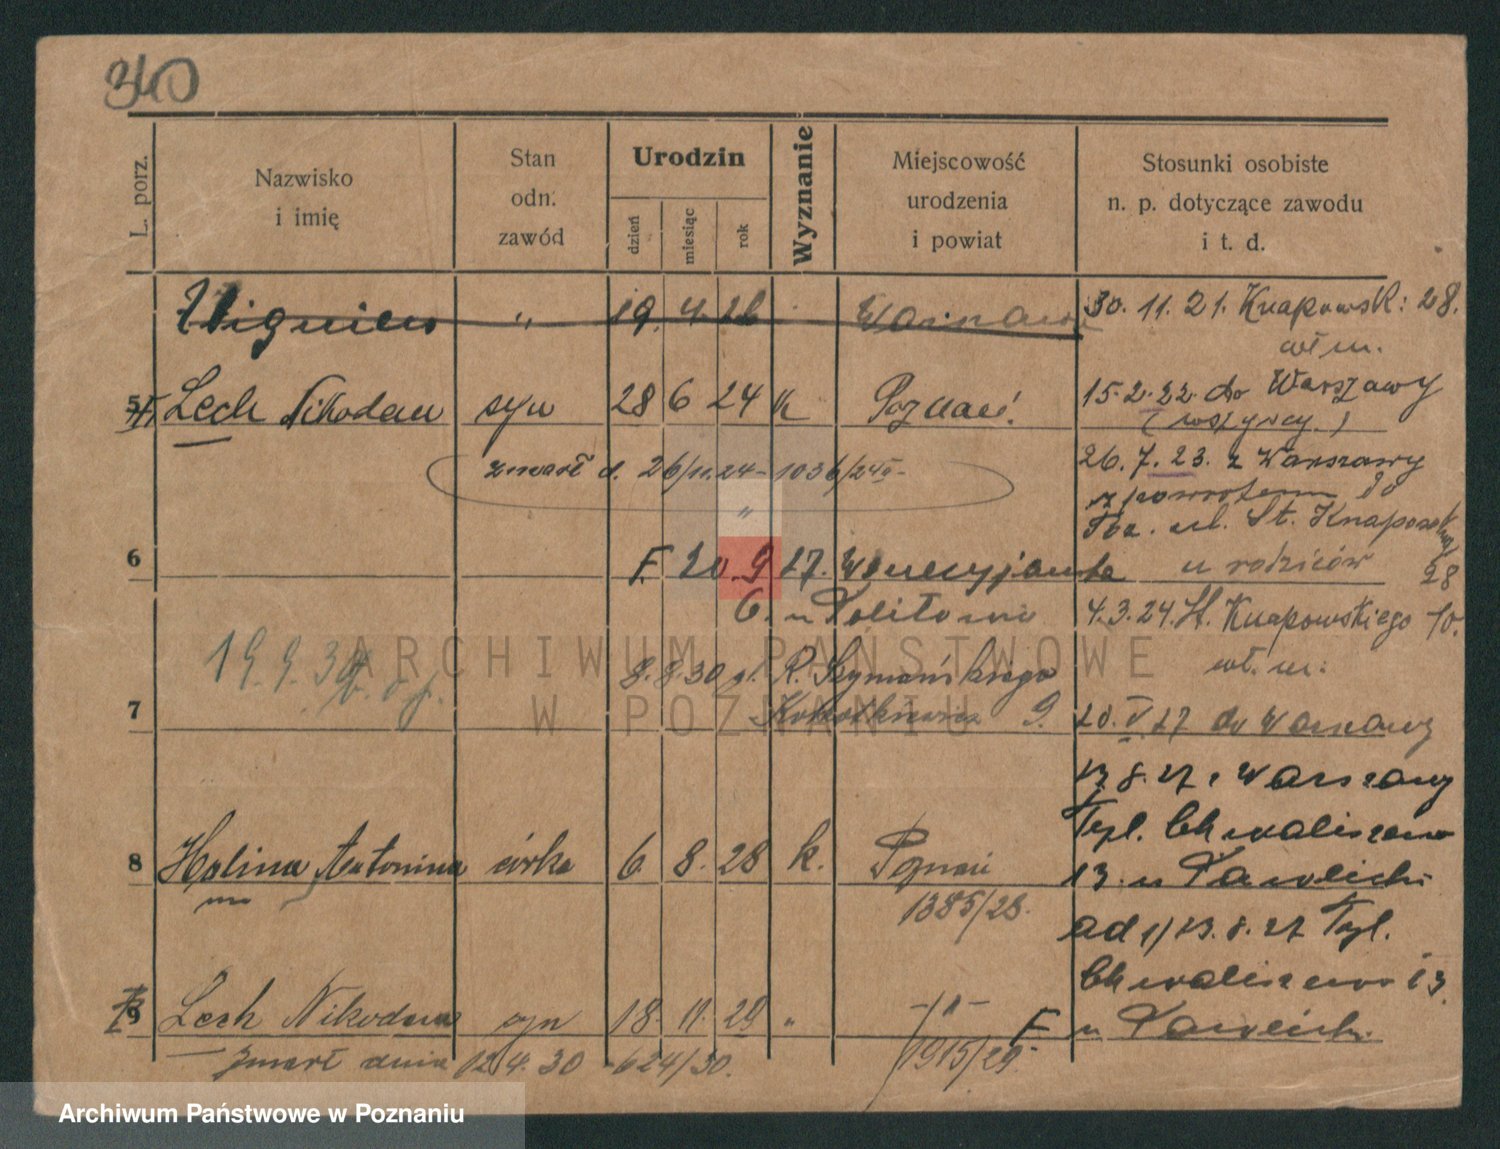 340
L. porz.
Nazwisko
i imię
Stan
odn.
zawód
Urodzin
dzień
miesiąc
rok
Wyznanie
Miejscowość
urodzenia
i powiat
Stosunki osobiste
n. p. dotyczące zawodu
i t. d.
Zbigniew " 19. 4. Warszawa
30. 11. 21. Knapowsk: 28.
wł m.
5 Lech Nikodem syn 28 6 24 K Poznań.
15. 2. 22. do Warszawy
(wszyscy.)
zmarł d. 26/11. 24 - 1036/24
26. 7. 23. z Warszawy
z powrotem do
Poz. ul. St. Knapowsk
u rodziców 28
6
F. 20. 9 27. Wenecyjanska
6. u
4. 3. 24. H. Knapowskiego 10.
wł. m:
19. 9. 30
8. 8. 30 R. Szymańskiego
9.
7
20. V. 27 do Warszawy
13. 8. 27 z Warszawy
Tyl. Chwaliszewo
13. u Pawlicki
8 Halina Antonina córka 6. 8. 28 k. Poznań
1385/28.
ad 1/13. 8. 27 Tyl.
Chwaliszewo 13.
F u Pawlick.
9 Lech Nikodem syn 18. 11. 29 " -"-
zmarł dnia 12. 4. 30 624/30. 1915/29
ARCHIWUM PAŃSTWOWE
W POZNANIU
Archiwum Państwowe w Poznaniu